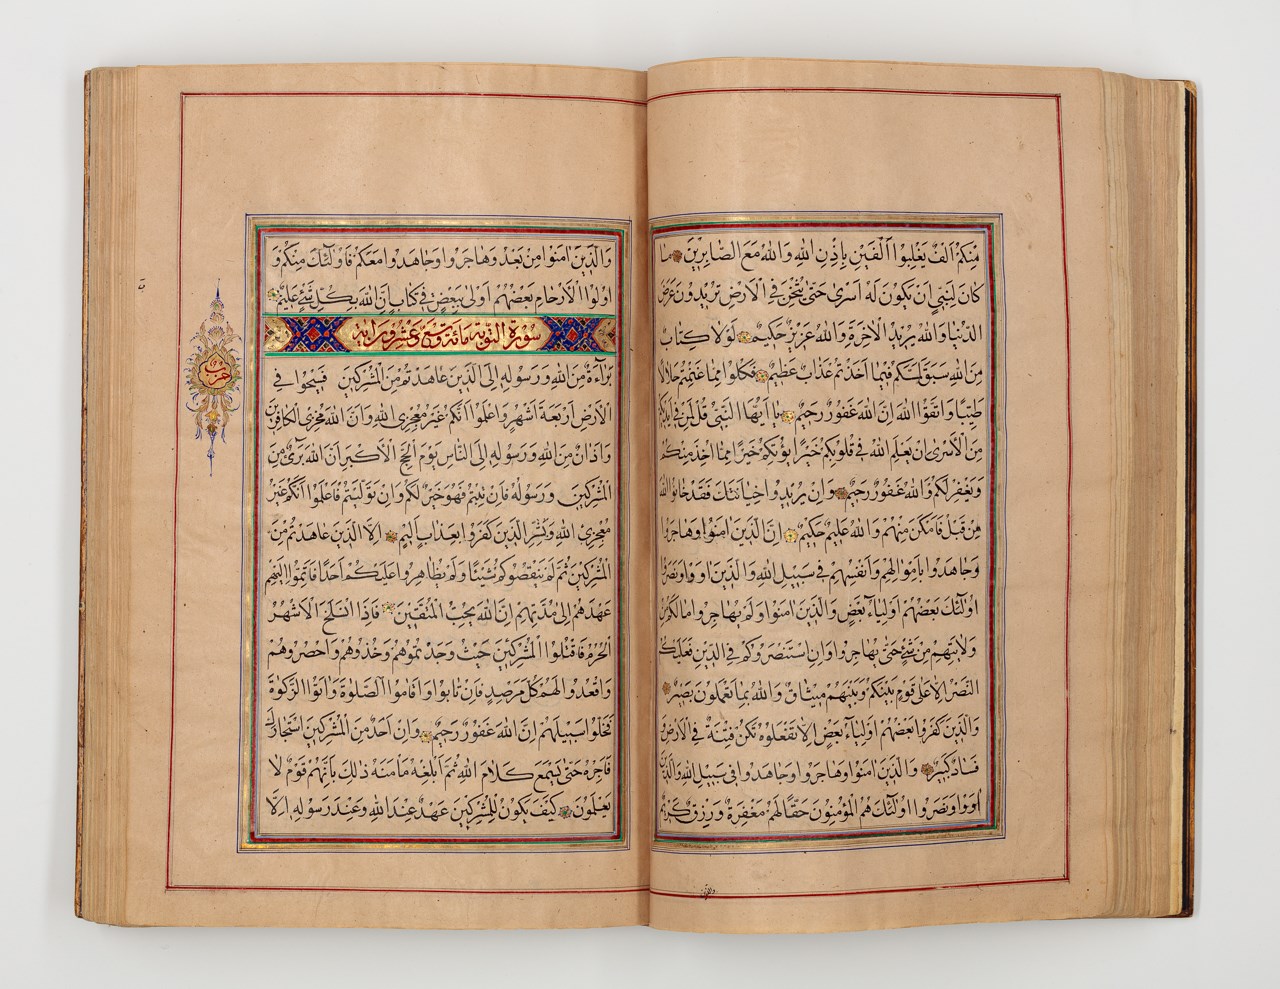 مِنْكُمْ اَلْفٌ يَغْلِبُوا اَلْفَيْنِ بِاِذْنِ اللهِ وَاللهُ مَعَ الصَّابِرِينَ مَا
كَانَ لِنَبِيٍّ اَنْ يَكُونَ لَهُ اَسْرٰى حَتّٰى يُثْخِنَ فِي الْاَرْضِ تُرِيدُونَ عَرَضَ
الدُّنْيَا وَاللهُ يُرِيدُ الْاٰخِرَةَ وَاللهُ عَزِيزٌ حَكِيمٌ لَوْلَا كِتَابٌ
مِنَ اللهِ سَبَقَ لَمَسَّكُمْ فِيمَا اَخَذْتُمْ عَذَابٌ عَظِيمٌ فَكُلُوا مِمَّا غَنِمْتُمْ حَلَالًا
طَيِّبًا وَاتَّقُوا اللهَ اِنَّ اللهَ غَفُورٌ رَحِيمٌ يَا اَيُّهَا النَّبِيُّ قُلْ لِمَنْ فِي اَيْدِيكُمْ
مِنَ الْاَسْرٰى اِنْ يَعْلَمِ اللهُ فِي قُلُوبِكُمْ خَيْرًا يُؤْتِكُمْ خَيْرًا مِمَّا اُخِذَ مِنْكُمْ
وَيَغْفِرْ لَكُمْ وَاللهُ غَفُورٌ رَحِيمٌ وَاِنْ يُرِيدُوا خِيَانَتَكَ فَقَدْ خَانُوا اللهَ
مِنْ قَبْلُ فَاَمْكَنَ مِنْهُمْ وَاللهُ عَلِيمٌ حَكِيمٌ اِنَّ الَّذِينَ اٰمَنُوا وَهَاجَرُوا
وَجَاهَدُوا بِاَمْوَالِهِمْ وَاَنْفُسِهِمْ فِي سَبِيلِ اللهِ وَالَّذِينَ اٰوَوْا وَنَصَرُوا
اُولٰئِكَ بَعْضُهُمْ اَوْلِيَاءُ بَعْضٍ وَالَّذِينَ اٰمَنُوا وَلَمْ يُهَاجِرُوا مَا لَكُمْ مِنْ
وَلَايَتِهِمْ مِنْ شَيْءٍ حَتّٰى يُهَاجِرُوا وَاِنِ اسْتَنْصَرُوكُمْ فِي الدِّينِ فَعَلَيْكُمُ
النَّصْرُ اِلَّا عَلٰى قَوْمٍ بَيْنَكُمْ وَبَيْنَهُمْ مِيثَاقٌ وَاللهُ بِمَا تَعْمَلُونَ بَصِيرٌ
وَالَّذِينَ كَفَرُوا بَعْضُهُمْ اَوْلِيَاءُ بَعْضٍ اِلَّا تَفْعَلُوهُ تَكُنْ فِتْنَةٌ فِي الْاَرْضِ
وَفَسَادٌ كَبِيرٌ وَالَّذِينَ اٰمَنُوا وَهَاجَرُوا وَجَاهَدُوا فِي سَبِيلِ اللهِ وَالَّذِينَ
اٰوَوْا وَنَصَرُوا اُولٰئِكَ هُمُ الْمُؤْمِنُونَ حَقًّا لَهُمْ مَغْفِرَةٌ وَرِزْقٌ كَرِيمٌ
والذين
وَالَّذِينَ اٰمَنُوا مِنْ بَعْدُ وَهَاجَرُوا وَجَاهَدُوا مَعَكُمْ فَاُولٰئِكَ مِنْكُمْ وَ
اُولُوا الْاَرْحَامِ بَعْضُهُمْ اَوْلٰى بِبَعْضٍ فِي كِتَابِ اللهِ اِنَّ اللهَ بِكُلِّ شَيْءٍ عَلِيمٌ
سورة التوبة مائة وتسع وعشرون اية
بَرَاءَةٌ مِنَ اللهِ وَرَسُولِهِ اِلَى الَّذِينَ عَاهَدْتُمْ مِنَ الْمُشْرِكِينَ فَسِيحُوا فِي
حزب
الْاَرْضِ اَرْبَعَةَ اَشْهُرٍ وَاعْلَمُوا اَنَّكُمْ غَيْرُ مُعْجِزِي اللهِ وَاَنَّ اللهَ مُخْزِي الْكَافِرِينَ
وَاَذَانٌ مِنَ اللهِ وَرَسُولِهِ اِلَى النَّاسِ يَوْمَ الْحَجِّ الْاَكْبَرِ اَنَّ اللهَ بَرِيءٌ مِنَ
الْمُشْرِكِينَ وَرَسُولُهُ فَاِنْ تُبْتُمْ فَهُوَ خَيْرٌ لَكُمْ وَاِنْ تَوَلَّيْتُمْ فَاعْلَمُوا اَنَّكُمْ غَيْرُ
مُعْجِزِي اللهِ وَبَشِّرِ الَّذِينَ كَفَرُوا بِعَذَابٍ اَلِيمٍ اِلَّا الَّذِينَ عَاهَدْتُمْ مِنَ
الْمُشْرِكِينَ ثُمَّ لَمْ يَنْقُصُوكُمْ شَيْئًا وَلَمْ يُظَاهِرُوا عَلَيْكُمْ اَحَدًا فَاَتِمُّوا اِلَيْهِمْ
عَهْدَهُمْ اِلٰى مُدَّتِهِمْ اِنَّ اللهَ يُحِبُّ الْمُتَّقِينَ فَاِذَا انْسَلَخَ الْاَشْهُرُ
الْحُرُمُ فَاقْتُلُوا الْمُشْرِكِينَ حَيْثُ وَجَدْتُمُوهُمْ وَخُذُوهُمْ وَاحْصُرُوهُمْ
وَاقْعُدُوا لَهُمْ كُلَّ مَرْصَدٍ فَاِنْ تَابُوا وَاَقَامُوا الصَّلٰوةَ وَاٰتَوُا الزَّكٰوةَ
فَخَلُّوا سَبِيلَهُمْ اِنَّ اللهَ غَفُورٌ رَحِيمٌ وَاِنْ اَحَدٌ مِنَ الْمُشْرِكِينَ اسْتَجَارَكَ
فَاَجِرْهُ حَتّٰى يَسْمَعَ كَلَامَ اللهِ ثُمَّ اَبْلِغْهُ مَاْمَنَهُ ذٰلِكَ بِاَنَّهُمْ قَوْمٌ لَا
يَعْلَمُونَ كَيْفَ يَكُونُ لِلْمُشْرِكِينَ عَهْدٌ عِنْدَ اللهِ وَعِنْدَ رَسُولِهِ اِلَّا